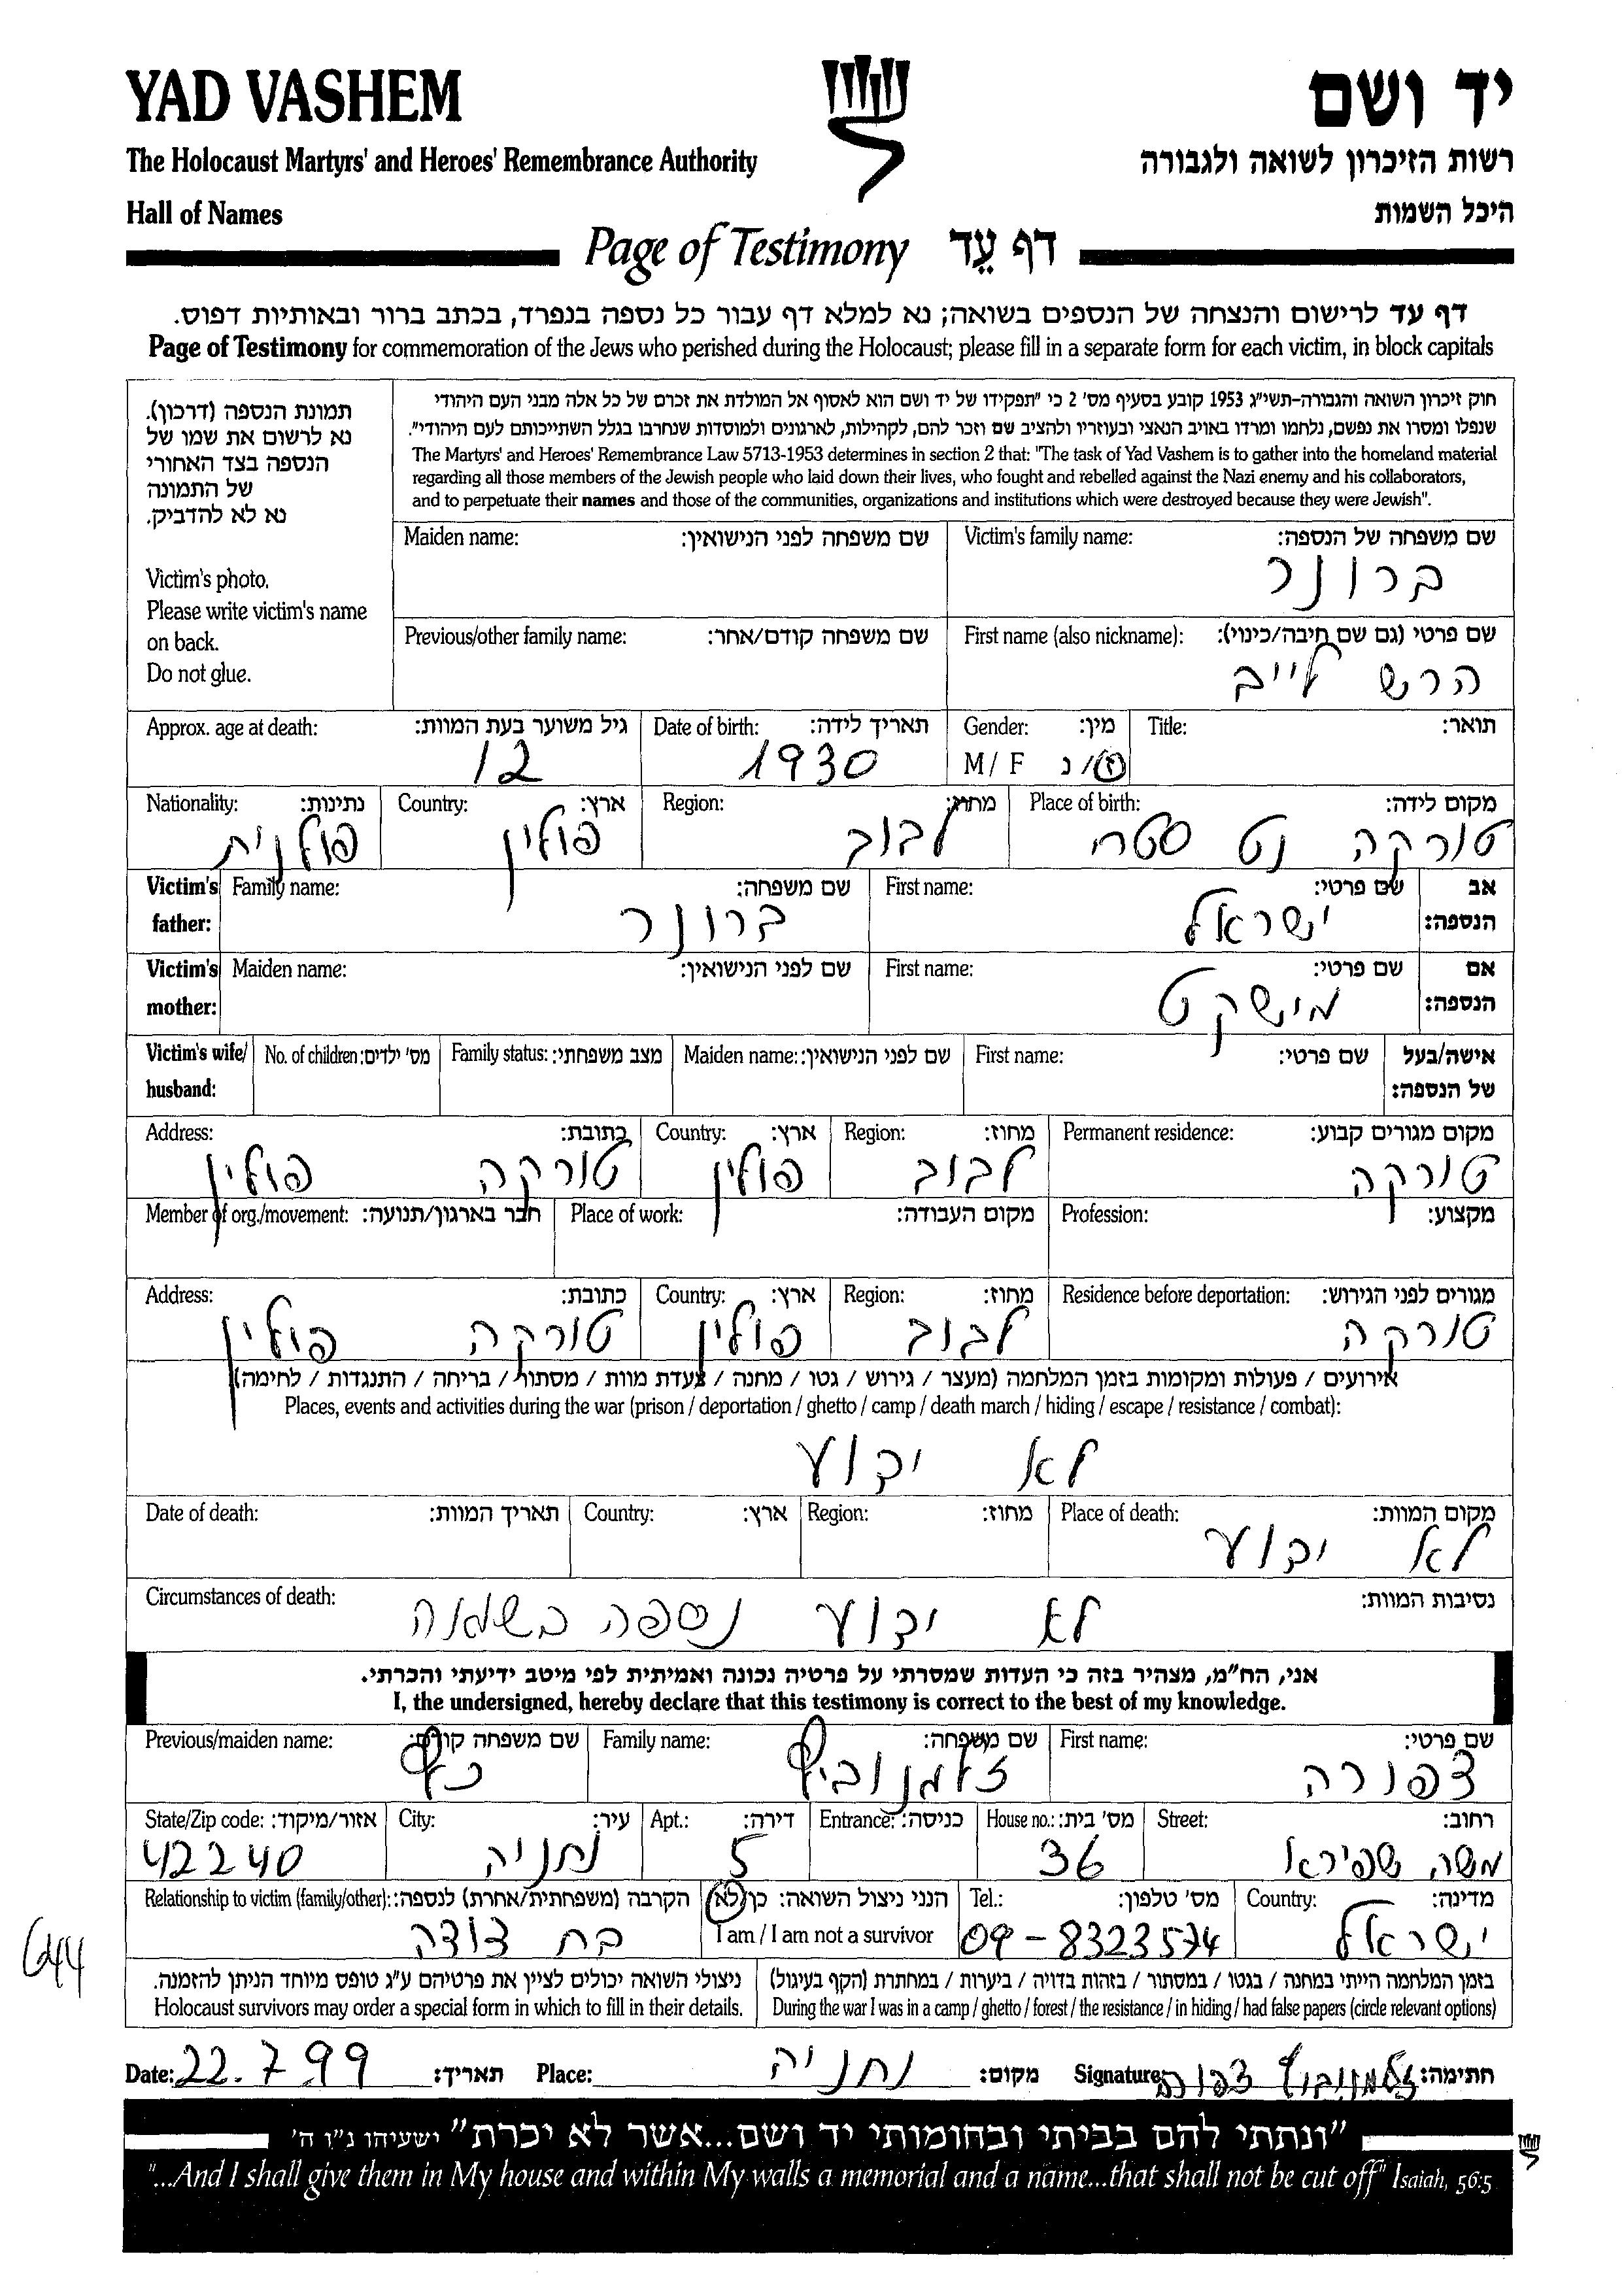 YAD VASHEM
יד ושם
The Holocaust Martyrs' and Heroes' Remembrance Authority
רשות הזיכרון לשואה ולגבורה
Hall of Names
היכל השמות
Page of Testimony דף עֵד
דף עד לרישום והנצחה של הנספים בשואה; נא למלא דף עבור כל נספה בנפרד, בכתב ברור ובאותיות דפוס.
Page of Testimony for commemoration of the Jews who perished during the Holocaust; please fill in a separate form for each victim, in block capitals
תמונת הנספה (דרכון).
נא לרשום את שמו של
הנספה בצד האחורי
של התמונה
נא לא להדביק.
Victim's photo.
Please write victim's name
on back.
Do not glue.
חוק זיכרון השואה והגבורה-תשי"ג 1953 קובע בסעיף מס' 2 כי "תפקידו של יד ושם הוא לאסוף אל המולדת את זכרם של כל אלה מבני העם היהודי
שנפלו ומסרו את נפשם, נלחמו ומרדו באויב הנאצי ובעוזריו ולהציב שם וזכר להם, לקהילות, לארגונים ולמוסדות שנחרבו בגלל השתייכותם לעם היהודי".
The Martyrs' and Heroes' Remembrance Law 5713-1953 determines in section 2 that: "The task of Yad Vashem is to gather into the homeland material
regarding all those members of the Jewish people who laid down their lives, who fought and rebelled against the Nazi enemy and his collaborators,
and to perpetuate their names and those of the communities, organizations and institutions which were destroyed because they were Jewish".
Maiden name: שם משפחה לפני הנישואין: Victim's family name: שם משפחה של הנספה:
ברונר
Previous/other family name: שם משפחה קודם/אחר: First name (also nickname): שם פרטי (גם שם חיבה/כינוי):
הרש לייב
Approx. age at death: גיל משוער בעת המוות: Date of birth: תאריך לידה: Gender: מין: Title: תואר:
12 1930 M / F ז/נ
Nationality: נתינות: Country: ארץ: Region: מחוז: Place of birth: מקום לידה:
פולנית פולין לבוב טורקה נט סטר
Victim's father: Family name: שם משפחה: First name: שם פרטי: אב הנספה:
ברונר ישראל
Victim's mother: Maiden name: שם לפני הנישואין: First name: שם פרטי: אם הנספה:
מישקט
Victim's wife/ husband: No. of children: מס' ילדים: Family status: מצב משפחתי: Maiden name: שם לפני הנישואין: First name: שם פרטי: אישה/בעל של הנספה:
Address: כתובת: Country: ארץ: Region: מחוז: Permanent residence: מקום מגורים קבוע:
טורקה פולין פולין לבוב טורקה
Member of org./movement: חבר בארגון/תנועה: Place of work: מקום העבודה: Profession: מקצוע:
Address: כתובת: Country: ארץ: Region: מחוז: Residence before deportation: מגורים לפני הגירוש:
טורקה פולין פולין לבוב טורקה
אירועים / פעולות ומקומות בזמן המלחמה (מעצר / גירוש / גטו / מחנה / צעדת מוות / מסתור / בריחה / התנגדות / לחימה)
Places, events and activities during the war (prison / deportation / ghetto / camp / death march / hiding / escape / resistance / combat):
לא ידוע
Date of death: תאריך המוות: Country: ארץ: Region: מחוז: Place of death: מקום המוות:
לא ידוע
Circumstances of death: נסיבות המוות:
לא ידוע נספה בשואה
אני, הח"מ, מצהיר בזה כי העדות שמסרתי על פרטיה נכונה ואמיתית לפי מיטב ידיעתי והכרתי.
I, the undersigned, hereby declare that this testimony is correct to the best of my knowledge.
Previous/maiden name: שם משפחה קודם: Family name: שם משפחה: First name: שם פרטי:
כץ זלמנוביץ צפורה
State/Zip code: אזור/מיקוד: City: עיר: Apt.: דירה: Entrance: כניסה: House no.: מס' בית: Street: רחוב:
42240 נתניה 5 36 משה שפירא
Relationship to victim (family/other): הקרבה (משפחתית/אחרת) לנספה: הנני ניצול השואה: כן/לא Tel.: מס' טלפון: Country: מדינה:
בת דודה I am / I am not a survivor 09-8323574 ישראל
644
ניצולי השואה יכולים לציין את פרטיהם ע"ג טופס מיוחד הניתן להזמנה. בזמן המלחמה הייתי במחנה / בגטו / במסתור / בזהות בדויה / ביערות / במחתרת (הקף בעיגול)
Holocaust survivors may order a special form in which to fill in their details. During the war I was in a camp / ghetto / forest / the resistance / in hiding / had false papers (circle relevant options)
Date: 22.7.99 תאריך: Place: נתניה מקום: Signature זלמנוביץ צפורה חתימה:
"ונתתי להם בביתי ובחומותי יד ושם...אשר לא יכרת" ישעיהו נ"ו ה'
"...And I shall give them in My house and within My walls a memorial and a name...that shall not be cut off" Isaiah, 56:5